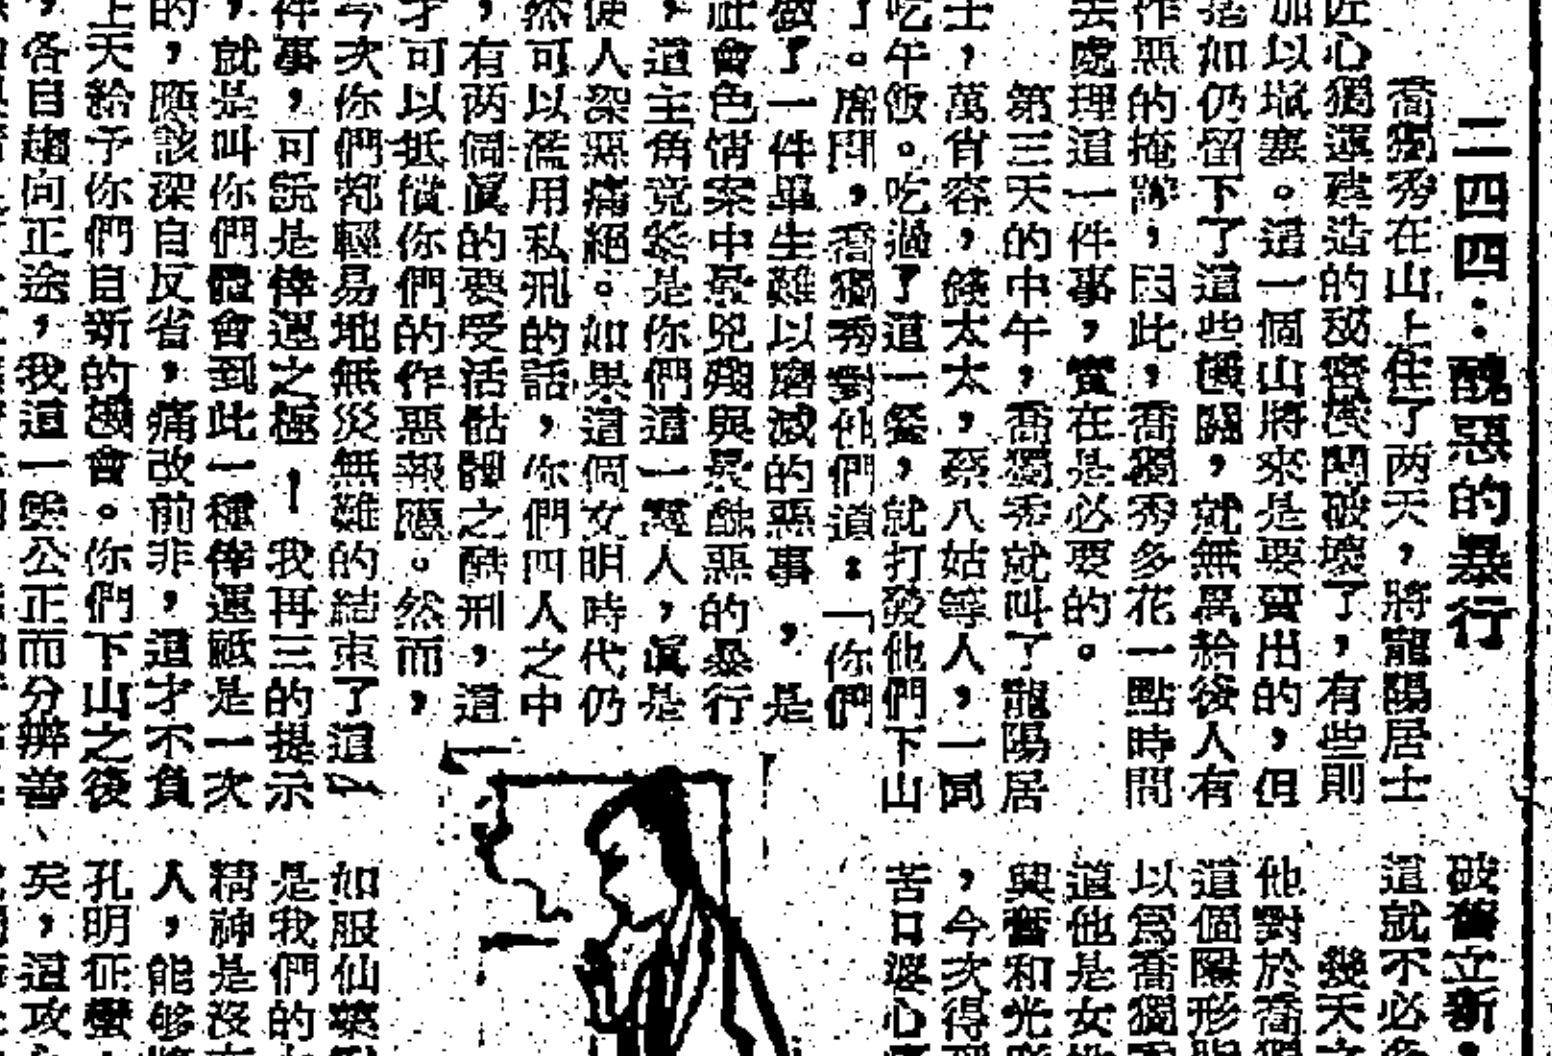 二四四：醜惡的暴行
喬獨秀在山上住了两天，將龍陽居士
匠心獨運建造的秘密機關破壞了，有些則
加以塡塞。這一個山將來是要賣出的，但
如仍留下了這些機關，就無異給後人有
作惡的掩蔽，因此，喬獨秀多花一點時間
去處理這一件事，實在是必要的。
第三天的中午，喬獨秀就叫了龍陽居
士，萬省容，錢太太，蔡八姑等人，一同
吃午飯。吃過了這一餐，就打發他們下山
了。席間，喬獨秀對他們道：「你們
做了一件畢生難以磨滅的惡事，是
社會色情案中最兇殘與最醜惡的暴行
，道主角竟然是你們這一夥人，眞是
使人深惡痛絕。如果這個女明時代仍
然可以濫用私刑的話，你們四人之中
，有两個眞的要受活骷髏之酷刑，這
才可以抵償你們的作惡報應。然而，
今次你們都輕易地無災無難的結束了這
件事，可說是倖運之極！我再三的提示
，就是叫你們體會到此一種倖運祗是一次
的，應該深自反省，痛改前非，這才不負
上天給予你們自新的機會。你們下山之後
，各自趨向正途，我這一 公正而分辨善
破舊立新，
這就不必
幾天
他對於喬獨
這個 形
以爲喬獨
道他是女
與舊和光
，今次得
苦口婆心
如服仙藥
是我們的
精神是沒
人，能够
孔明征蠻，
矣，這攻